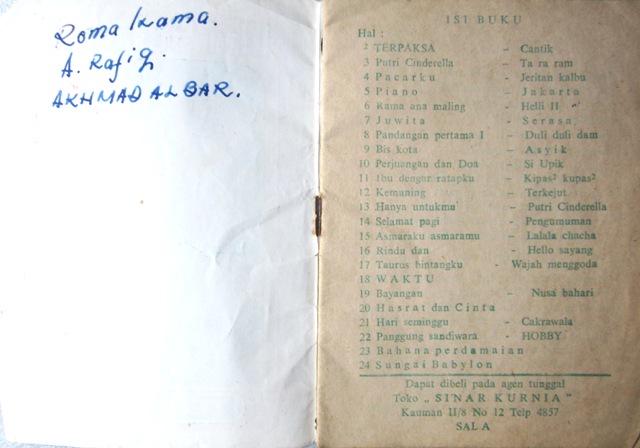 Roma Irama.
A. Rafiq.
AKHMAD ALBAR.
ISI BUKU
Hal :
2 TERPAKSA - Cantik
3 Putri Cinderella - Ta ra ram
4 Pacarku - Jeritan kalbu
5 Piano - Jakarta
6 Rama ana maling - Helli II
7 Juwita - Serasa
8 Pandangan pertama I - Duli duli dam
9 Bis kota - Asyik
10 Perjuangan dan Doa - Si Upik
11 Ibu dengar ratapku - Kipas² kupas²
12 Kemuning - Terkejut
13 Hanya untukmu - Putri Cinderella
14 Selamat pagi - Pengumuman
15 Asmaraku asmaramu - Lalala chacha
16 Rindu dan - Hello sayang
17 Taurus bintangku - Wajah menggoda
18 WAKTU
19 Bayangan - Nusa bahari
20 Hasrat dan Cinta
21 Hari seminggu - Cakrawala
22 Panggung sandiwara - HOBBY
23 Bahana perdamaian
24 Sungai Babylon
Dapat dibeli pada agen tunggal
Toko „ SINAR KURNIA "
Kauman II/8 No 12 Telp 4857
SALA